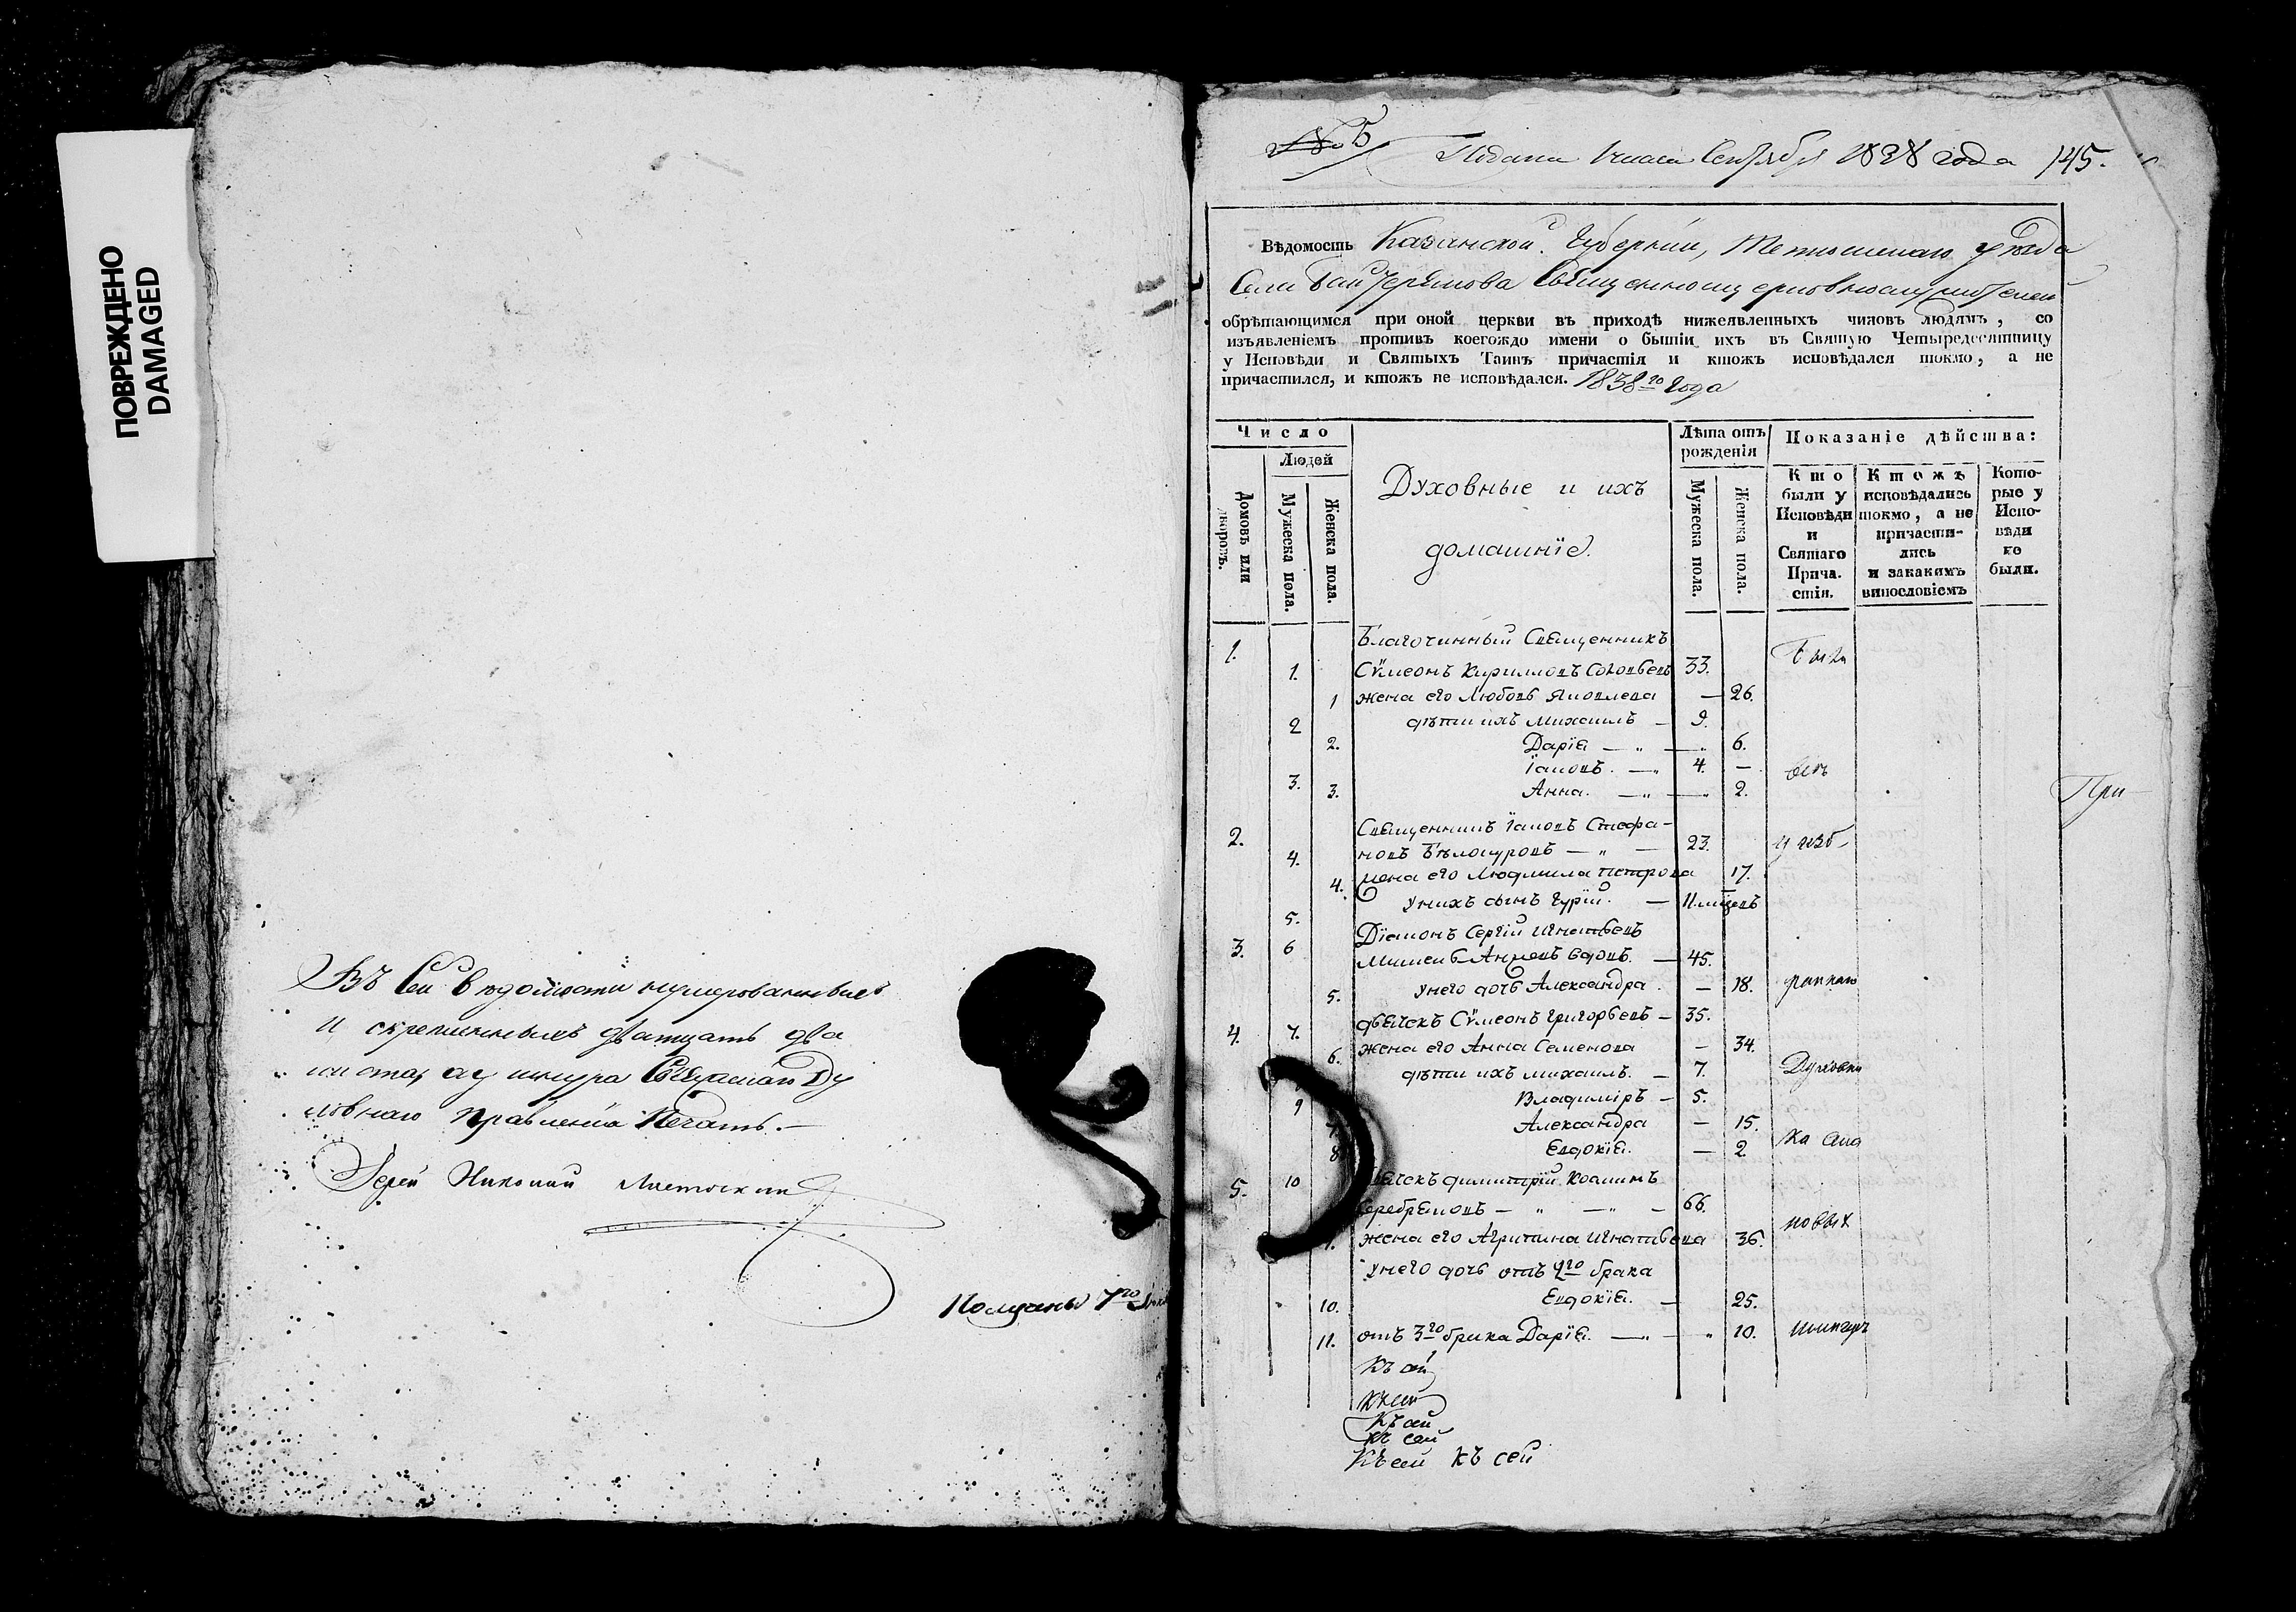 ПОВРЕЖДЕНО
DAMAGED
Въ Сей Ведомости нумерованныхъ
и скрепленныхъ дватцать два
листа, а у шнура Свіяжскаго Ду
ховнаго Правленія Печать.
Іерей Николай
Получены 7го
№ 5
Подана Сентября 1838 года 145.
Вѣдомость Казанской Губерніи, Тетюшскаго уѣзда
Села Байтерякова Священноцерковнослужителей
обрѣтающимся при оной церкви въ приходѣ нижеявленныхъ чиновъ людямъ, со
изъявленіемъ противъ коегождо имени о бытіи ихъ въ Святую Четыредесятницу
у Исповѣди и Святыхъ Таинъ причастія и ктожъ исповѣдался токмо, а не
причастился, и ктожъ не исповѣдался. 1838го Года
Число
Людей
Домовъ или дворовъ.
Мужеска пола.
Женска пола.
Духовные и ихъ
домашніе.
Лѣта отъ
рожденія
Мужеска пола.
Женска пола.
Показаніе дѣйства:
Кто
были у
Исповѣди
и
Святаго
Прича-
стія.
Ктожъ
исповѣдались
токмо, а не
причасти-
лись
и закакимъ
винословіемъ
Кото-
рые у
Испо-
вѣди
не
были.
Благочинный Священникъ
1. 1. Сѵмеонъ Кириловъ Соловьевъ 33. были
1 жена его Любовь Яковлева — 26.
2 дѣти ихъ Михаилъ — 9.
2. Дарія — „ — „ 6.
3. Іаковъ. — „ 4. —
3. Анна. — „ — „ 2.
При
2. Священникъ Іаковъ Стефа-
4. новъ Бѣлокуровъ — „ — 23.
4. жена его Людмила Петрова 17.
5. у нихъ сынъ Гурій. —
3. 6 Діаконъ Сергій Игнатьевъ
вдовъ. — 45.
5. у него дочь Александра. — 18.
4. 7. дьячекъ Сѵмеонъ Григорьевъ — 35.
6. жена его Анна Семенова — 34.
дѣти ихъ Михаилъ. — 7. Духовна
9 Владиміръ — 5.
7. Александра — 15.
8 Евдокія. — 2
5. 10 дьячекъ Димитрій Козминъ
Серебряковъ — „ — „ — 66.
жена его Агрипина Игнатьева 36.
у него дочь отъ 2го брака
10. Евдокія. — 25.
11. отъ 3го брака Дарія. — „ — „ 10.
Къ сей
Къ сей
Къ сей
Къ сей
Къ сей къ сей